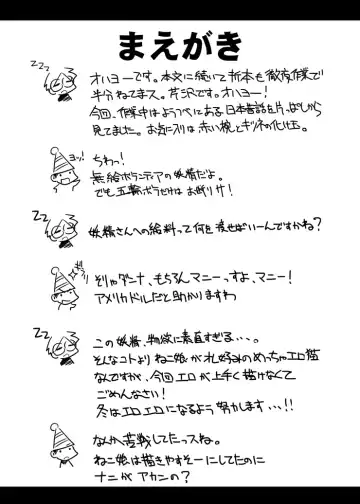 まえがき
zzz
オハヨーです。本文に続いて折本も徹夜作業で
半分ねてまス。芹沢です。オハヨー!
今回、作業中はようつべにある日本昔話を片っぱしから
見てました。お気に入りは赤い椀とギツネの化け玉。
ヨッ!
ちわっ!
無給ボランティアの妖精だよ。
でも五輪ボラだけはお断り!
zz
妖精さんへの給料って何を渡せばいーんですかね?
そりゃダンナ、もちろんマニーっすよ、マニー!
アメリカドルだと助かりますわ
zz
この妖精、物欲に素直すぎる・・・。
そんなコトよりねこ娘がオレ好みのめっちゃエロ猫
なんですが、今回エロが上手く描けなくて
ごめんなさい!
冬はエロエロになるよう努力します・・・!!
なんか苦戦してたっスね。
ねこ娘は描きやすそーにしてたのに
ナニがアカンの?